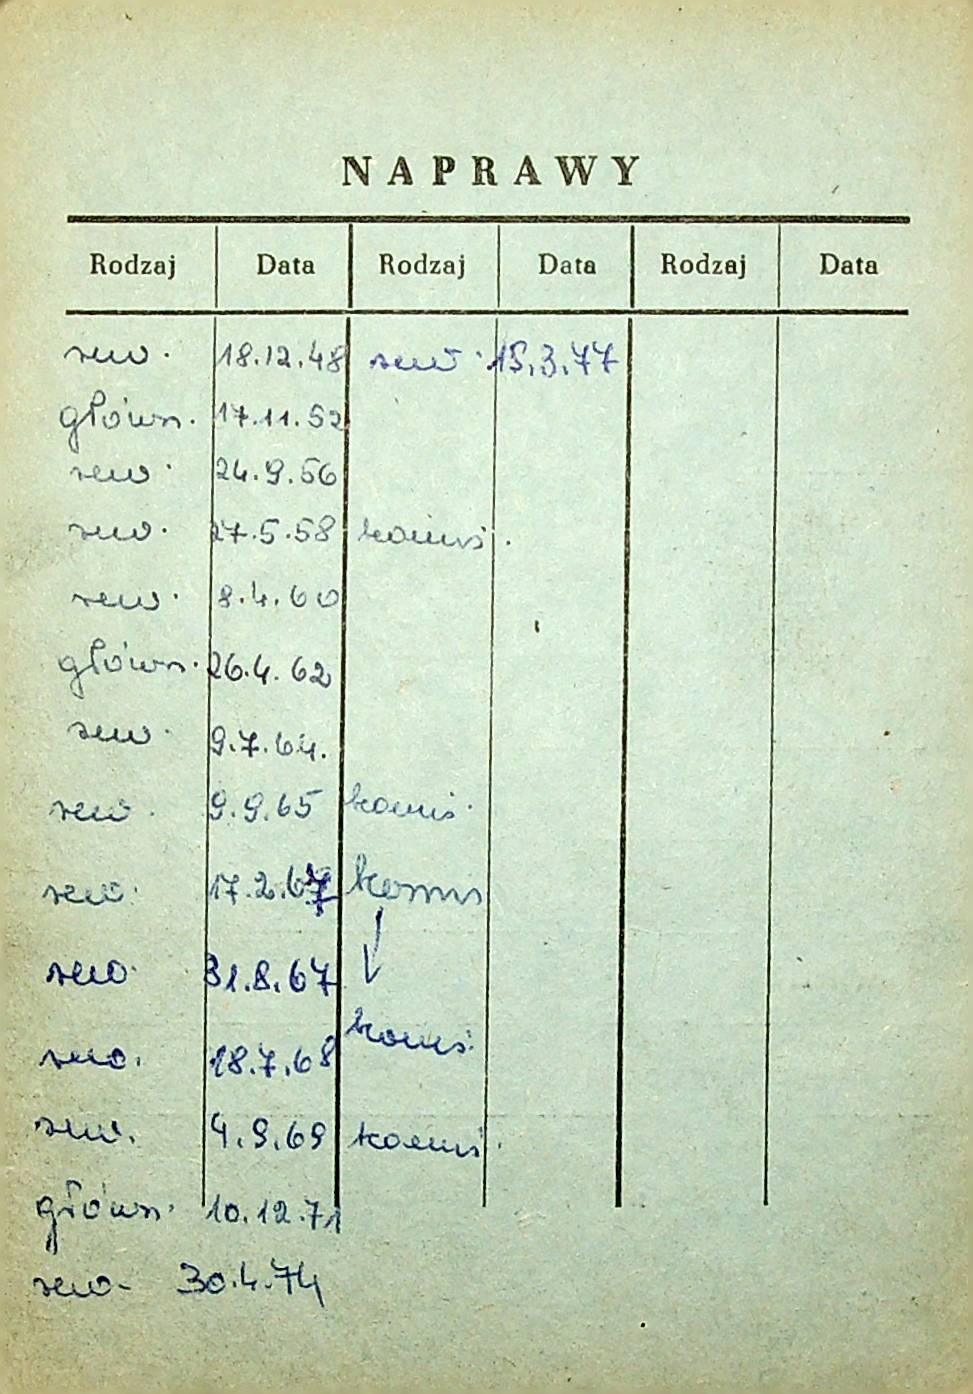 NAPRAWY
Rodzaj Data Rodzaj Data Rodzaj Data
rew. 18.12.48 rew. 15.3.77
główn. 17.11.52
rew. 24.9.56
rew. 27.5.58
rew. 8.4.60
główn. 26.4.62
rew. 9.7.64.
rew. 9.9.65
rew. 17.2.67
rew. 31.8.67
rew. 18.7.68
rew. 4.9.69
główn. 10.12.71
rew- 30.4.74